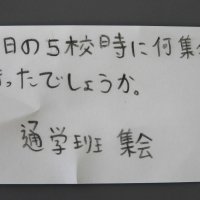 日の5校時に何集会
ったでしょうか。
通学班 集会